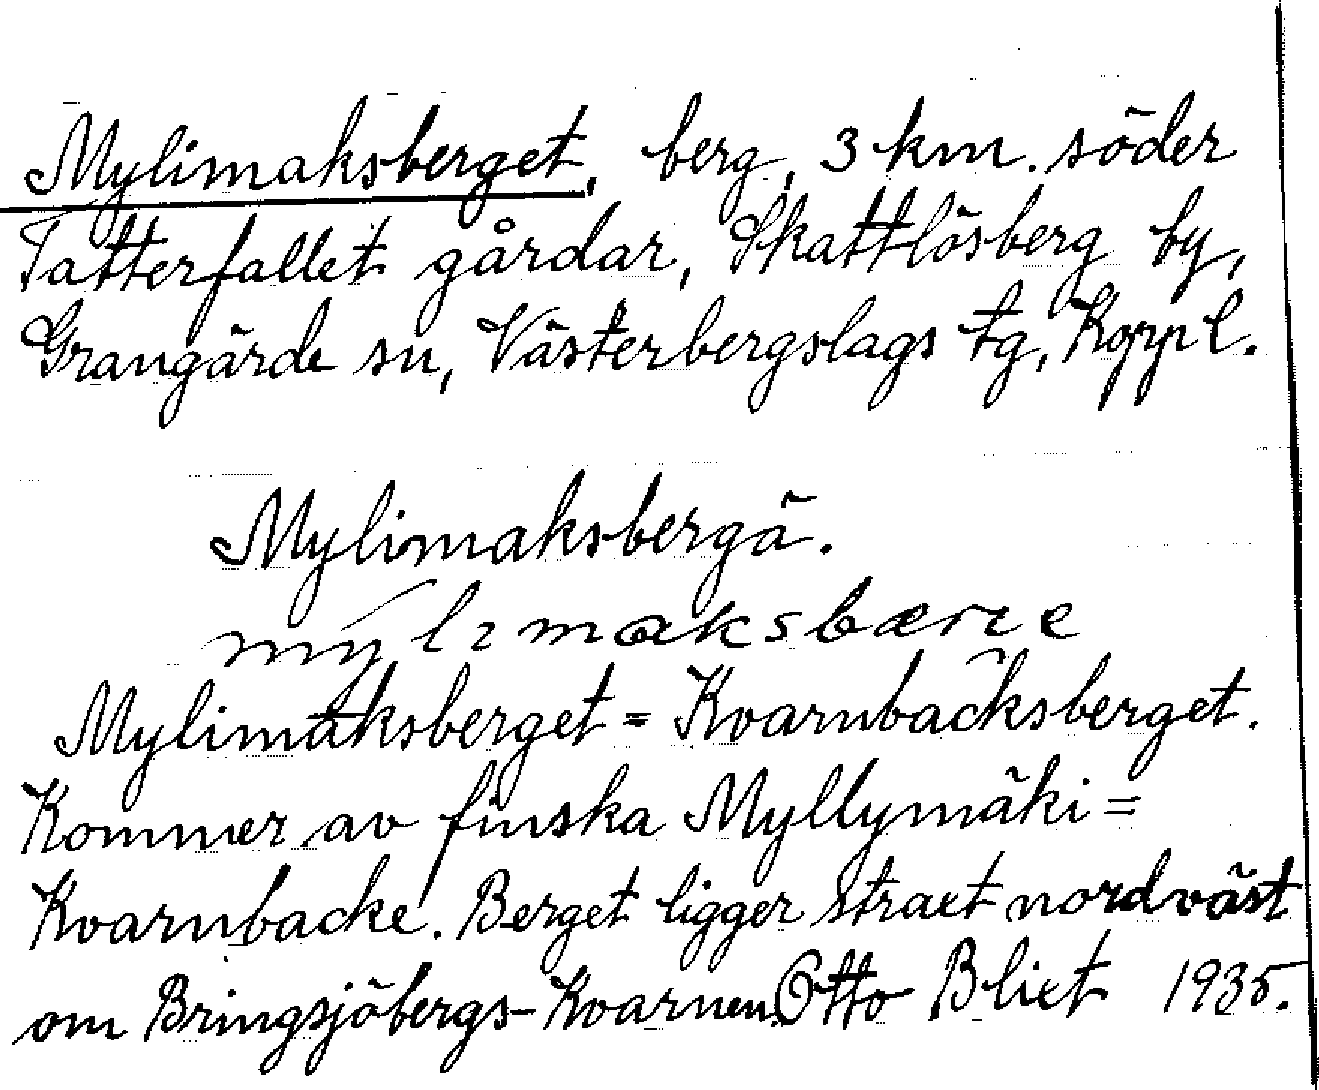 Mylimaksberget, berg, 3 km. söder
Tatterfallet gårdar, Skattlösberg by,
Grangärde sn, Västerbergslags tg, Kopp l.
Mylimaksbergä.
mylimaksbærɪe
Mylimaksberget = Kvarnbacksberget.
Kommer av finska Myllymäki =
Kvarnbacke. Berget ligger straxt nordväst
om Bringsjöbergs-Kvarnen. Otto Blixt 1935.